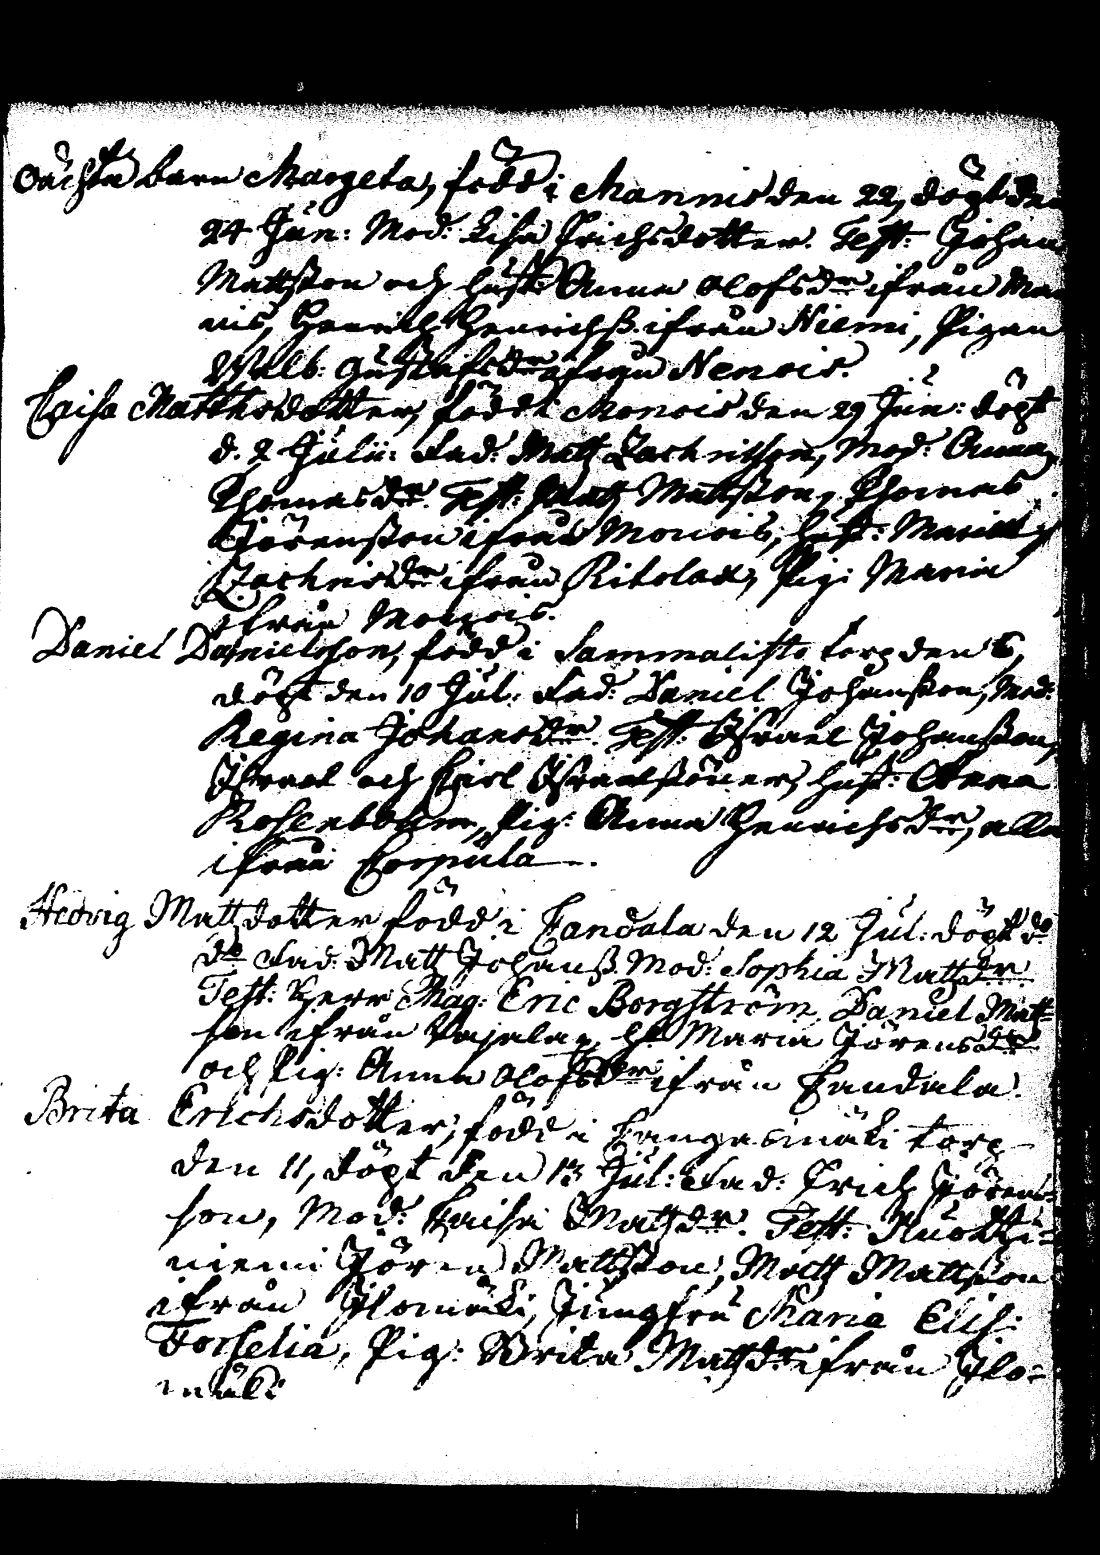 Oächta barn Margeta, född i Mannis den 22, döpt den
24 Jun: Mod: Lisa Erichsdotter. Test: Johan
Mattsson och hust: Anna Olofsdr ifrån Man
nis, Henrich Henrichss. ifrån Niemi, Pigan
Walb: Gustafsdr ifrån Nenois.
Caisa Matthsdotter, född i Monois den 29 Jun: döpt
d. 2 Julii: Fad: Matts Zachrisson, Mod: Anna
Thomasdr. Test: Matts Mattsson, Thomas
Jörensson ifrån Monois, hust: Maria
Zachrisdr ifrån Ritolax, Pig: Maria
ifrån Monois.
Daniel Danielsson, född i Sammalisto torp den 6,
döpt den 10 Jul: Fad: Daniel Johansson, Mod:
Regina Johansdr. Test: Israel Johansson,
Israel och Carl Israelssöner, hust: Anna
Rosenbohm, Pig: Anna Henrichsdr, alla
ifrån Corpula.
Hedvig Mattsdotter född i Candala den 12 Jul: döpt do
do Fad: Matt Johanss. Mod: Sophia Mattsdr
Test: Herr Mag: Eric Borgström, Daniel Matt=
son ifrån Vajala, h: Maria Jörensdr
och Pig: Anna Olofsdr ifrån Candala.
Brita Erichsdotter, född i Kangasmäki torp
den 11, döpt den 13 Jul: Fad: Erich Jörens=
son, Mod: Caisa Mattsdr. Test: Ruotzi=
niemi Jören Mattsson, Matts Mattsson
ifrån Ilomäki, Jungfru Maria Elis:
Forselia, Pig: Brita Mattsdr ifrån Ilo=
mäki